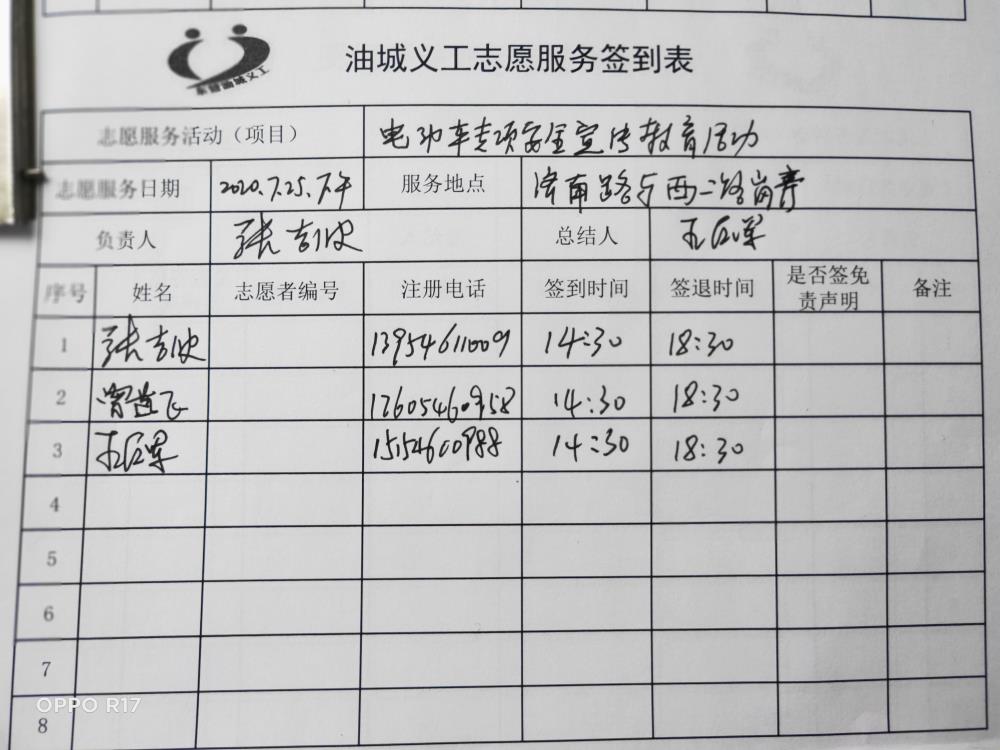 油城义工志愿服务签到表
志愿服务活动（项目） 电动车专项安全宣传教育活动
志愿服务日期 2020.7.25.下午 服务地点 济南路与西二路
负责人 张 总结人
序号 姓名 志愿者编号 注册电话 签到时间 签退时间 是否签免责声明 备注
1 张 13954611009 14:30 18:30
2 14:30 18:30
3 14:30 18:30
4
5
6
7
8
OPPO R17